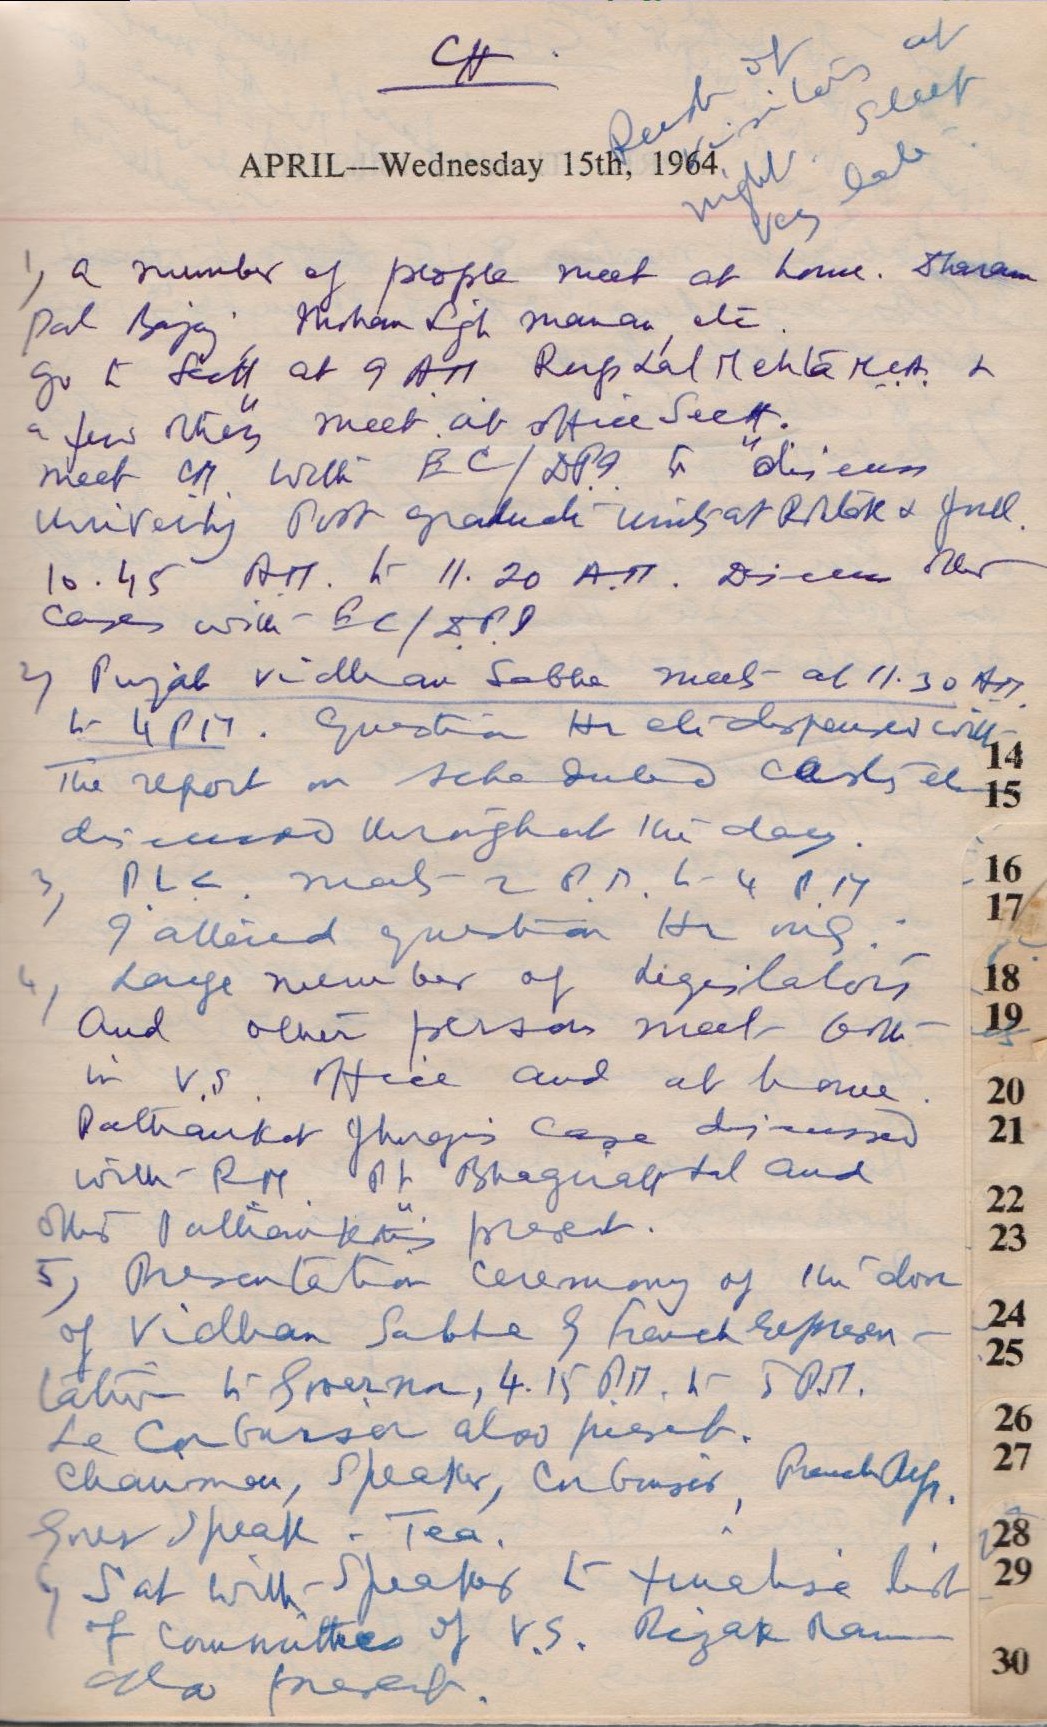 CH
Rush of
visitors at
night. Sleep
very late.
APRIL—Wednesday 15th, 1964
1, A number of people meet at home. Dharam
Pal Bajaj, Mohan Sgh manan, etc.
go to Sectt at 9 AM Rup Lal Mehta MLA &
a few others meet at office Sectt.
meet CM with EC/DPI to discuss
University Post graduate units at Rohtak & Jull.
10.45 A.M. to 11.20 A.M. Discuss other
cases with EC/DPI
2, Punjab Vidhan Sabha meets at 11.30 AM
to 4 PM. Question Hr etc dispensed with
The report on scheduled castes etc
discussed throughout the day.
3, P.L.C. meets 2 P.M. to 4 P.M
I attend question Hr only.
4, Large number of Legislators
And other persons meet both
in V.S. office and at home.
Pathankot Jhugis case discussed
with RM. Pt Bhagirath Lal and
others present.
5, Presentation ceremony of the door
of Vidhan Sabha by French Represen-
tative to Governor, 4.15 P.M. to 5 P.M.
Le Corbusier also present.
Chairman, Speaker, Corbusier, French Rep.
Gover speak. Tea.
6, Sat with Speaker to finalise list
of committees of V.S. Rizak Ram
also present.
14
15
16
17
18
19
20
21
22
23
24
25
26
27
28
29
30